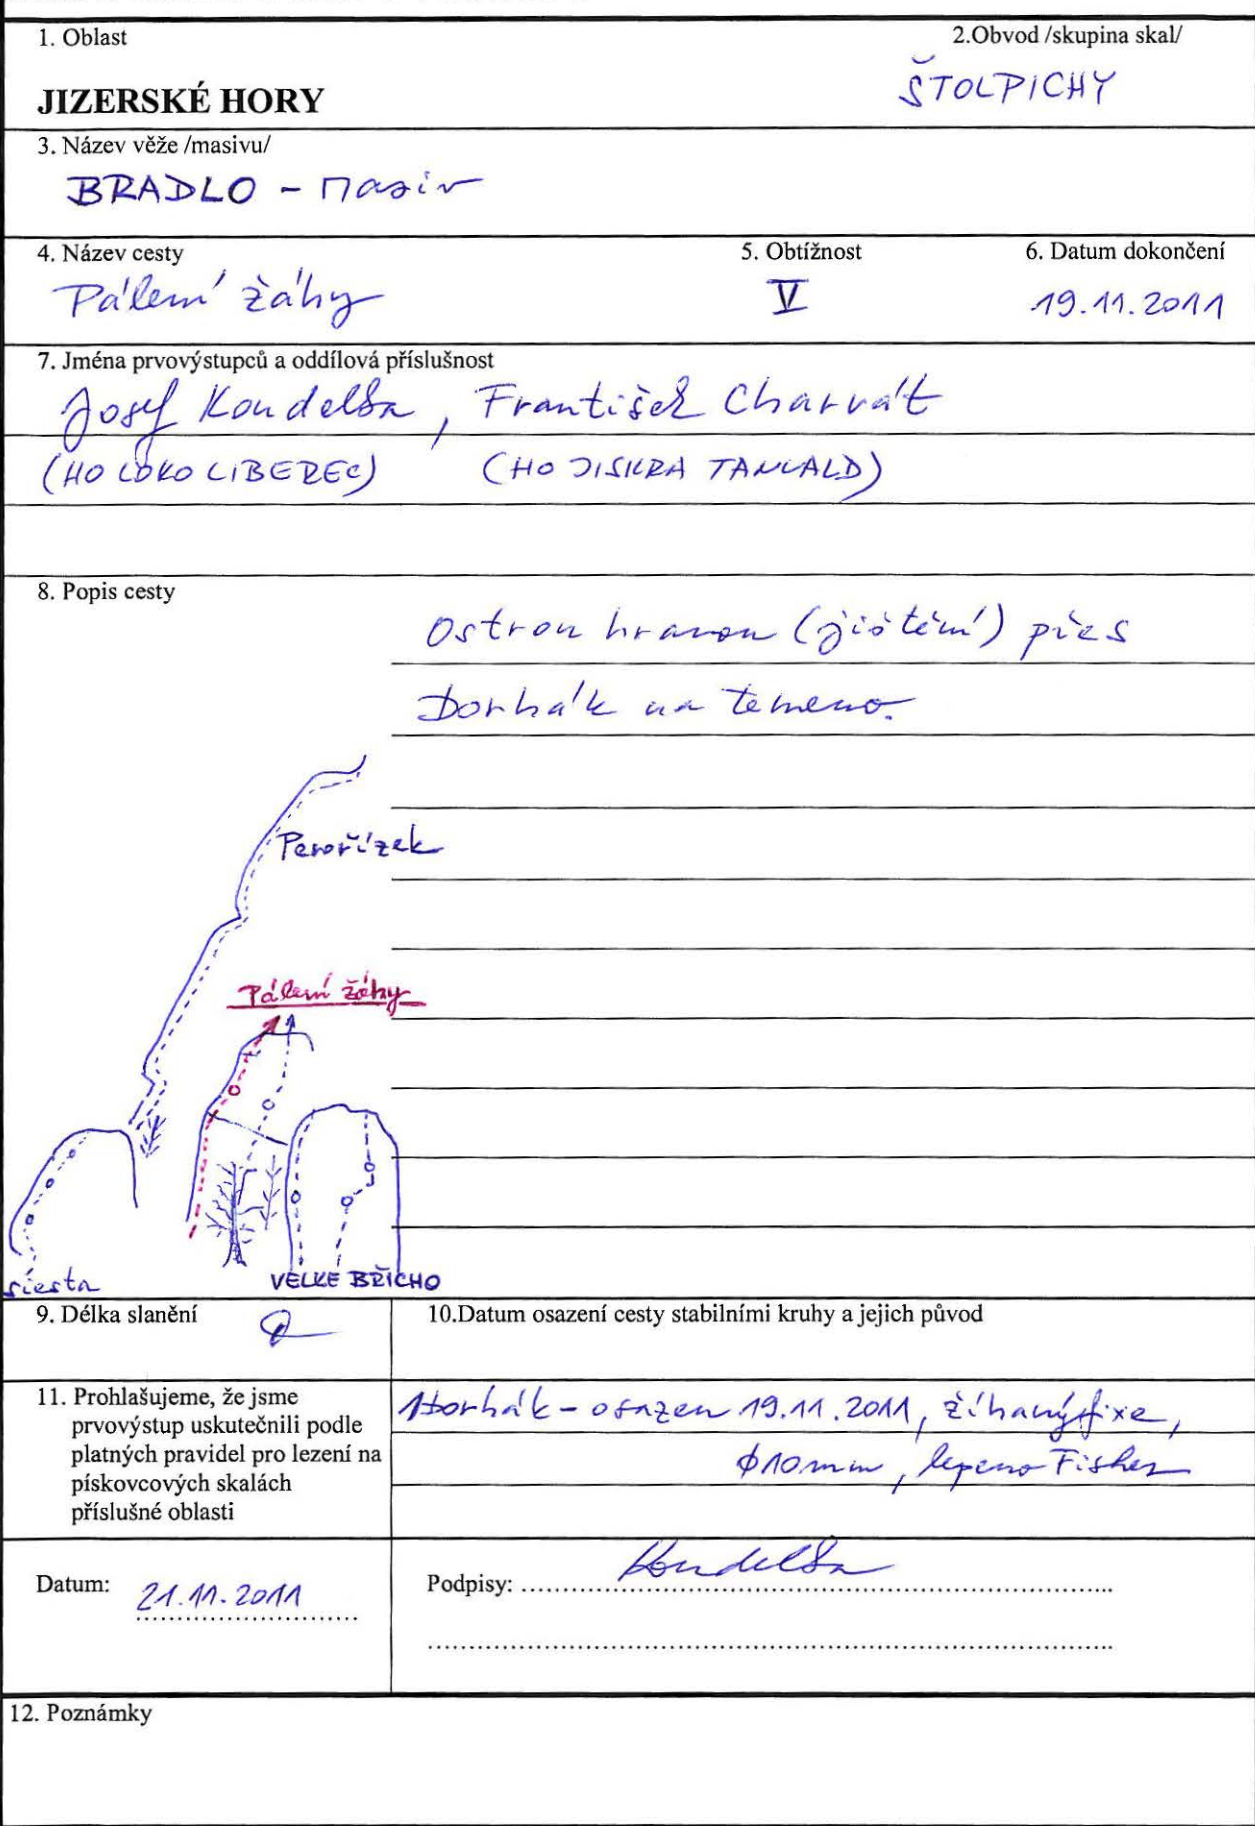 1. Oblast
2.Obvod /skupina skal/
JIZERSKÉ HORY
ŠTOLPICHY
3. Název věže /masivu/
BRADLO - masiv
4. Název cesty
5. Obtížnost
6. Datum dokončení
Pálení žáhy
V
19.11.2011
7. Jména prvovýstupců a oddílová příslušnost
Josef Koudelka, František Charvát
(HO LOKO LIBEREC) (HO JISKRA TANVALD)
8. Popis cesty
Ostrou hranou (jištění) přes
Borhák na temeno.
Perořízek
Pálení žáhy
siesta
VELKÉ BŘICHO
9. Délka slanění
10.Datum osazení cesty stabilními kruhy a jejich původ
11. Prohlašujeme, že jsme
prvovýstup uskutečnili podle
platných pravidel pro lezení na
pískovcových skalách
příslušné oblasti
1 borhák - osazen 19.11.2011, žíhaný fixe,
φ10mm, lepeno Fisher
Datum: 21.11.2011
Podpisy: Koudelka
12. Poznámky